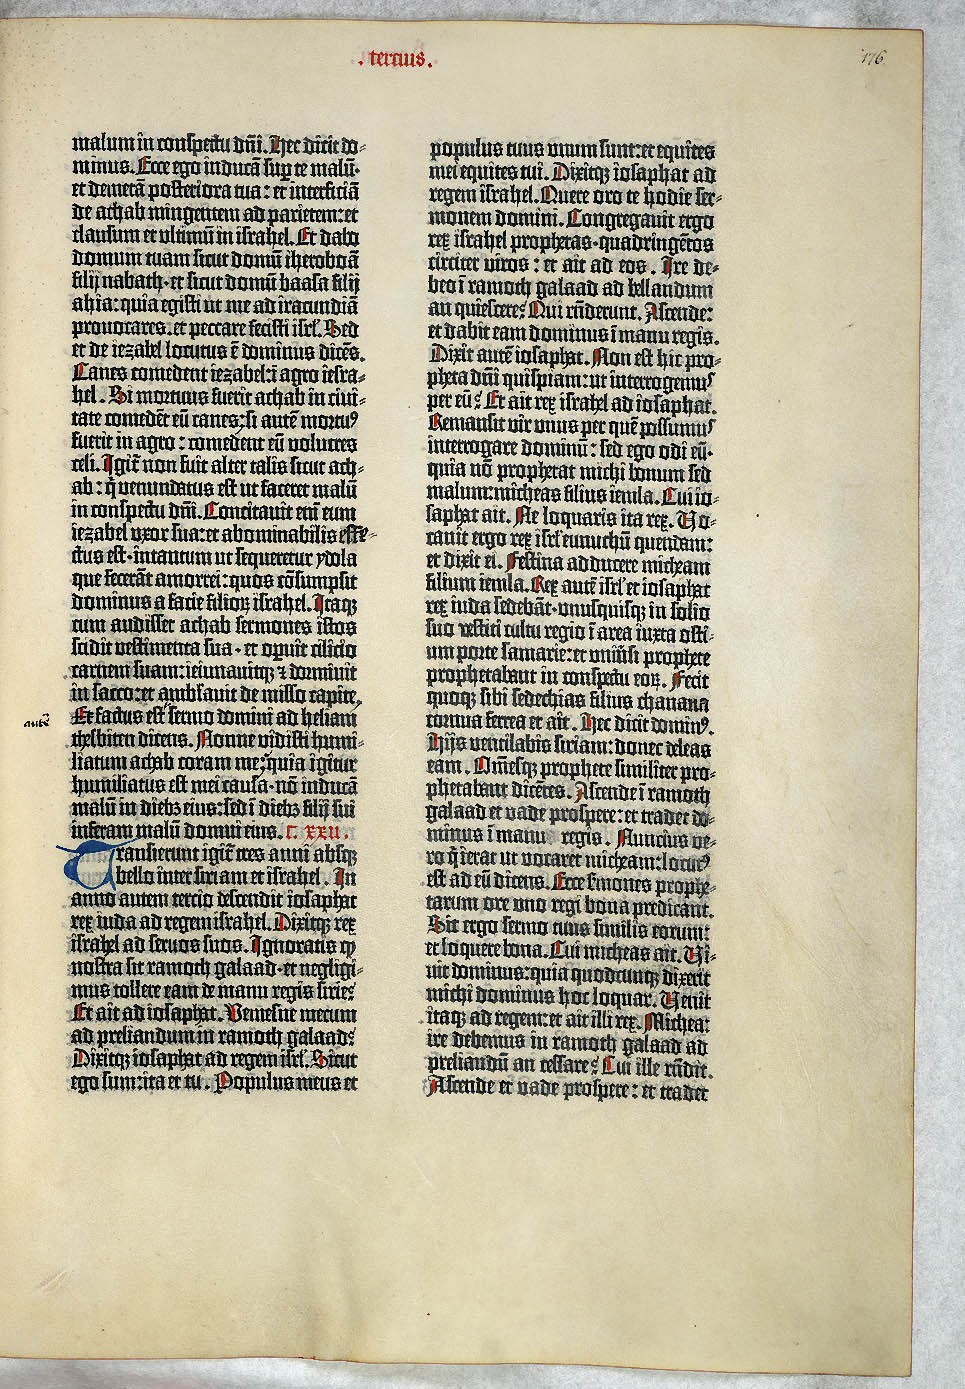 . tercius .
176
malum in conspectu dñi. Hec dicit do-
minus. Ecce ego inducã sup te malũ·
et demetã posteriora tua: et interficiã
de achab mingentem ad parietem: et
clausum et ultimũ in israhel. Et dabo
domum tuam sicut domũ iheroboã
filij nabath· et sicut domũ baasa filij
ahia: quia egisti ut me ad iracundiã
provocares. et peccare fecisti isrl̃. Sed
et de iezabel locutus ẽ dominus dicẽs.
Canes comedent iezabel: ĩ agro iesra-
hel. Si mortuus fuerit achab in civi-
tate comedẽt eũ canes: si autẽ mortuꝰ
fuerit in agro: comedent eũ volucres
celi. Igit̃ non fuit alter talis sicut ach-
ab: q̃ venundatus est ut faceret malũ
in conspectu dñi. Concitavit eni eum
iezabel uxor sua: et abominabilis effe-
ctus est· intantum ut sequeretur ydola
que fecerãt amorrei: quos cõsumpsit
dominus a facie filioꝝ israhel. Itaqꝫ
cum audisset achab sermones istos
scidit vestimenta sua· et opuit cilicio
carnem suam: ieiunavitqꝫ ⁊ dormivit
in sacco: et ambulavit demisso capite.
autẽ
Et factus est sermo domini ad heliam
thesbiten dicens. Nonne vidisti humi-
liatum achab coram me: quia igitur
humiliatus est mei causa· nõ inducã
malũ in diebꝫ eius: sed ĩ diebꝫ filij sui
inferam malũ domui eius. C. XXII.
Transierunt igit̃ tres anni absqꝫ
bello inter siriam et israhel. In
anno autem tercio descendit iosaphat
rex iuda ad regem israhel. Dixitqꝫ rex
israhel ad servos suos. Ignoratis ꝙ
nostra sit ramoth galaad· et negligi-
mus tollere eam de manu regis sirie?
Et ait ad iosaphat. Veniesne mecum
ad preliandum in ramoth galaad?
Dixitqꝫ iosaphat ad regem isrl̃. Sicut
ego sum: ita et tu. Populus meus et
populus tuus unum sunt: et equites
mei equites tui. Dixitqꝫ iosaphat ad
regem israhel. Quere oro te hodie ser-
monem domini. Congregavit ergo
rex israhel prophetas· quadringẽtos
circiter viros: et ait ad eos. Ire de-
beo ĩ ramoth galaad ad bellandum
an quiescere? Qui rñderunt. Ascende:
et dabit eam dominus ĩ manu regis.
Dixit autẽ iosaphat. Non est hic pro-
pheta dñi quispiam: ut interrogemuꝰ
per eũ? Et ait rex israhel ad iosaphat.
Remansit vir unus per quẽ possumuꝰ
interrogare dominũ: sed ego odi eũ·
quia nõ prophetat michi bonum sed
malum: micheas filius iemla. Cui io-
saphat ait. Ne loquaris ita rex. Vo-
cavit ergo rex isrl̃ eunuchũ quendam:
et dixit ei. Festina adducere micheam
filium iemla. Rex autẽ isrl̃ et iosaphat
rex iuda sedebãt· unusquisqꝫ in solio
suo vestiti cultu regio ĩ area iuxta osti-
um porte samarie: et univ̾si prophete
prophetabant in conspectu eoꝝ. Fecit
quoqꝫ sibi sedechias filius chanana
cornua ferrea et ait. Hec dicit dominꝰ.
Hijs ventilabis siriam: donec deleas
eam. Om̃esqꝫ prophete similiter pro-
phetabant dicẽtes. Ascende ĩ ramoth
galaad et vade prospere: et tradet do-
minus ĩ manu regis. Nuncius ve-
ro q̃ ierat ut vocaret micheam: locutꝰ
est ad eũ dicens. Ecce s̃mones prophe-
tarum ore uno regi bona predicant.
Sit ergo sermo tuus similis eorum:
et loquere bona. Cui micheas ait. Vi-
vit dominus: quia quodcunqꝫ dixerit
michi dominus hoc loquar. Venit
itaqꝫ ad regem: et ait illi rex. Michea:
ire debemus in ramoth galaad ad
preliandũ an cessare? Cui ille rñdit.
Ascende et vade prospere: et tradet